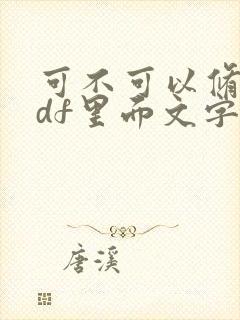 可不可以修
df里而文字
唐溪